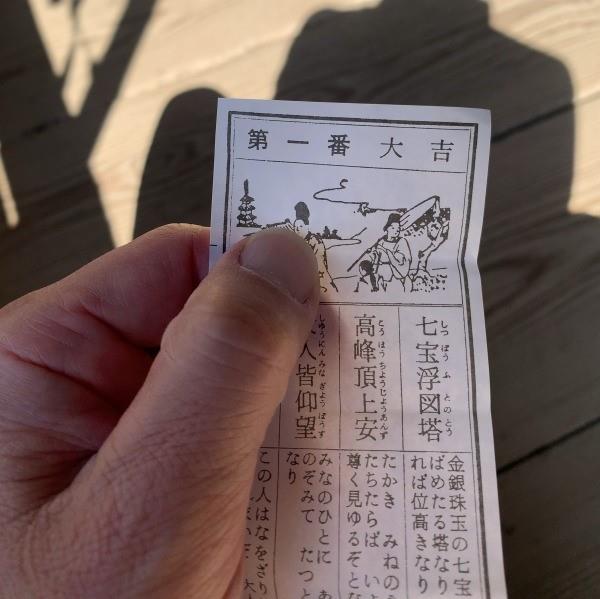 第一番大吉
七宝浮図塔
しつぽうふとのとう
高峰頂上安
ほうちようじようあんず
人皆仰望
しゆうにんみなぎようぼうす
金銀珠玉の七宝
ばめたる塔なり
れば位高きなり
たかき みねの
たちたらば い
尊く見ゆるぞとな
みなのひとに あ
のぞみて たつと
なり
この人はなをざり